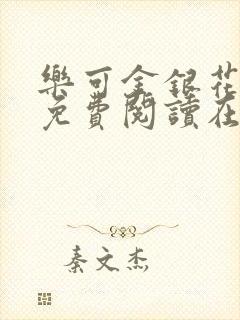 樂可金銀花
免費閱讀在
秦文杰